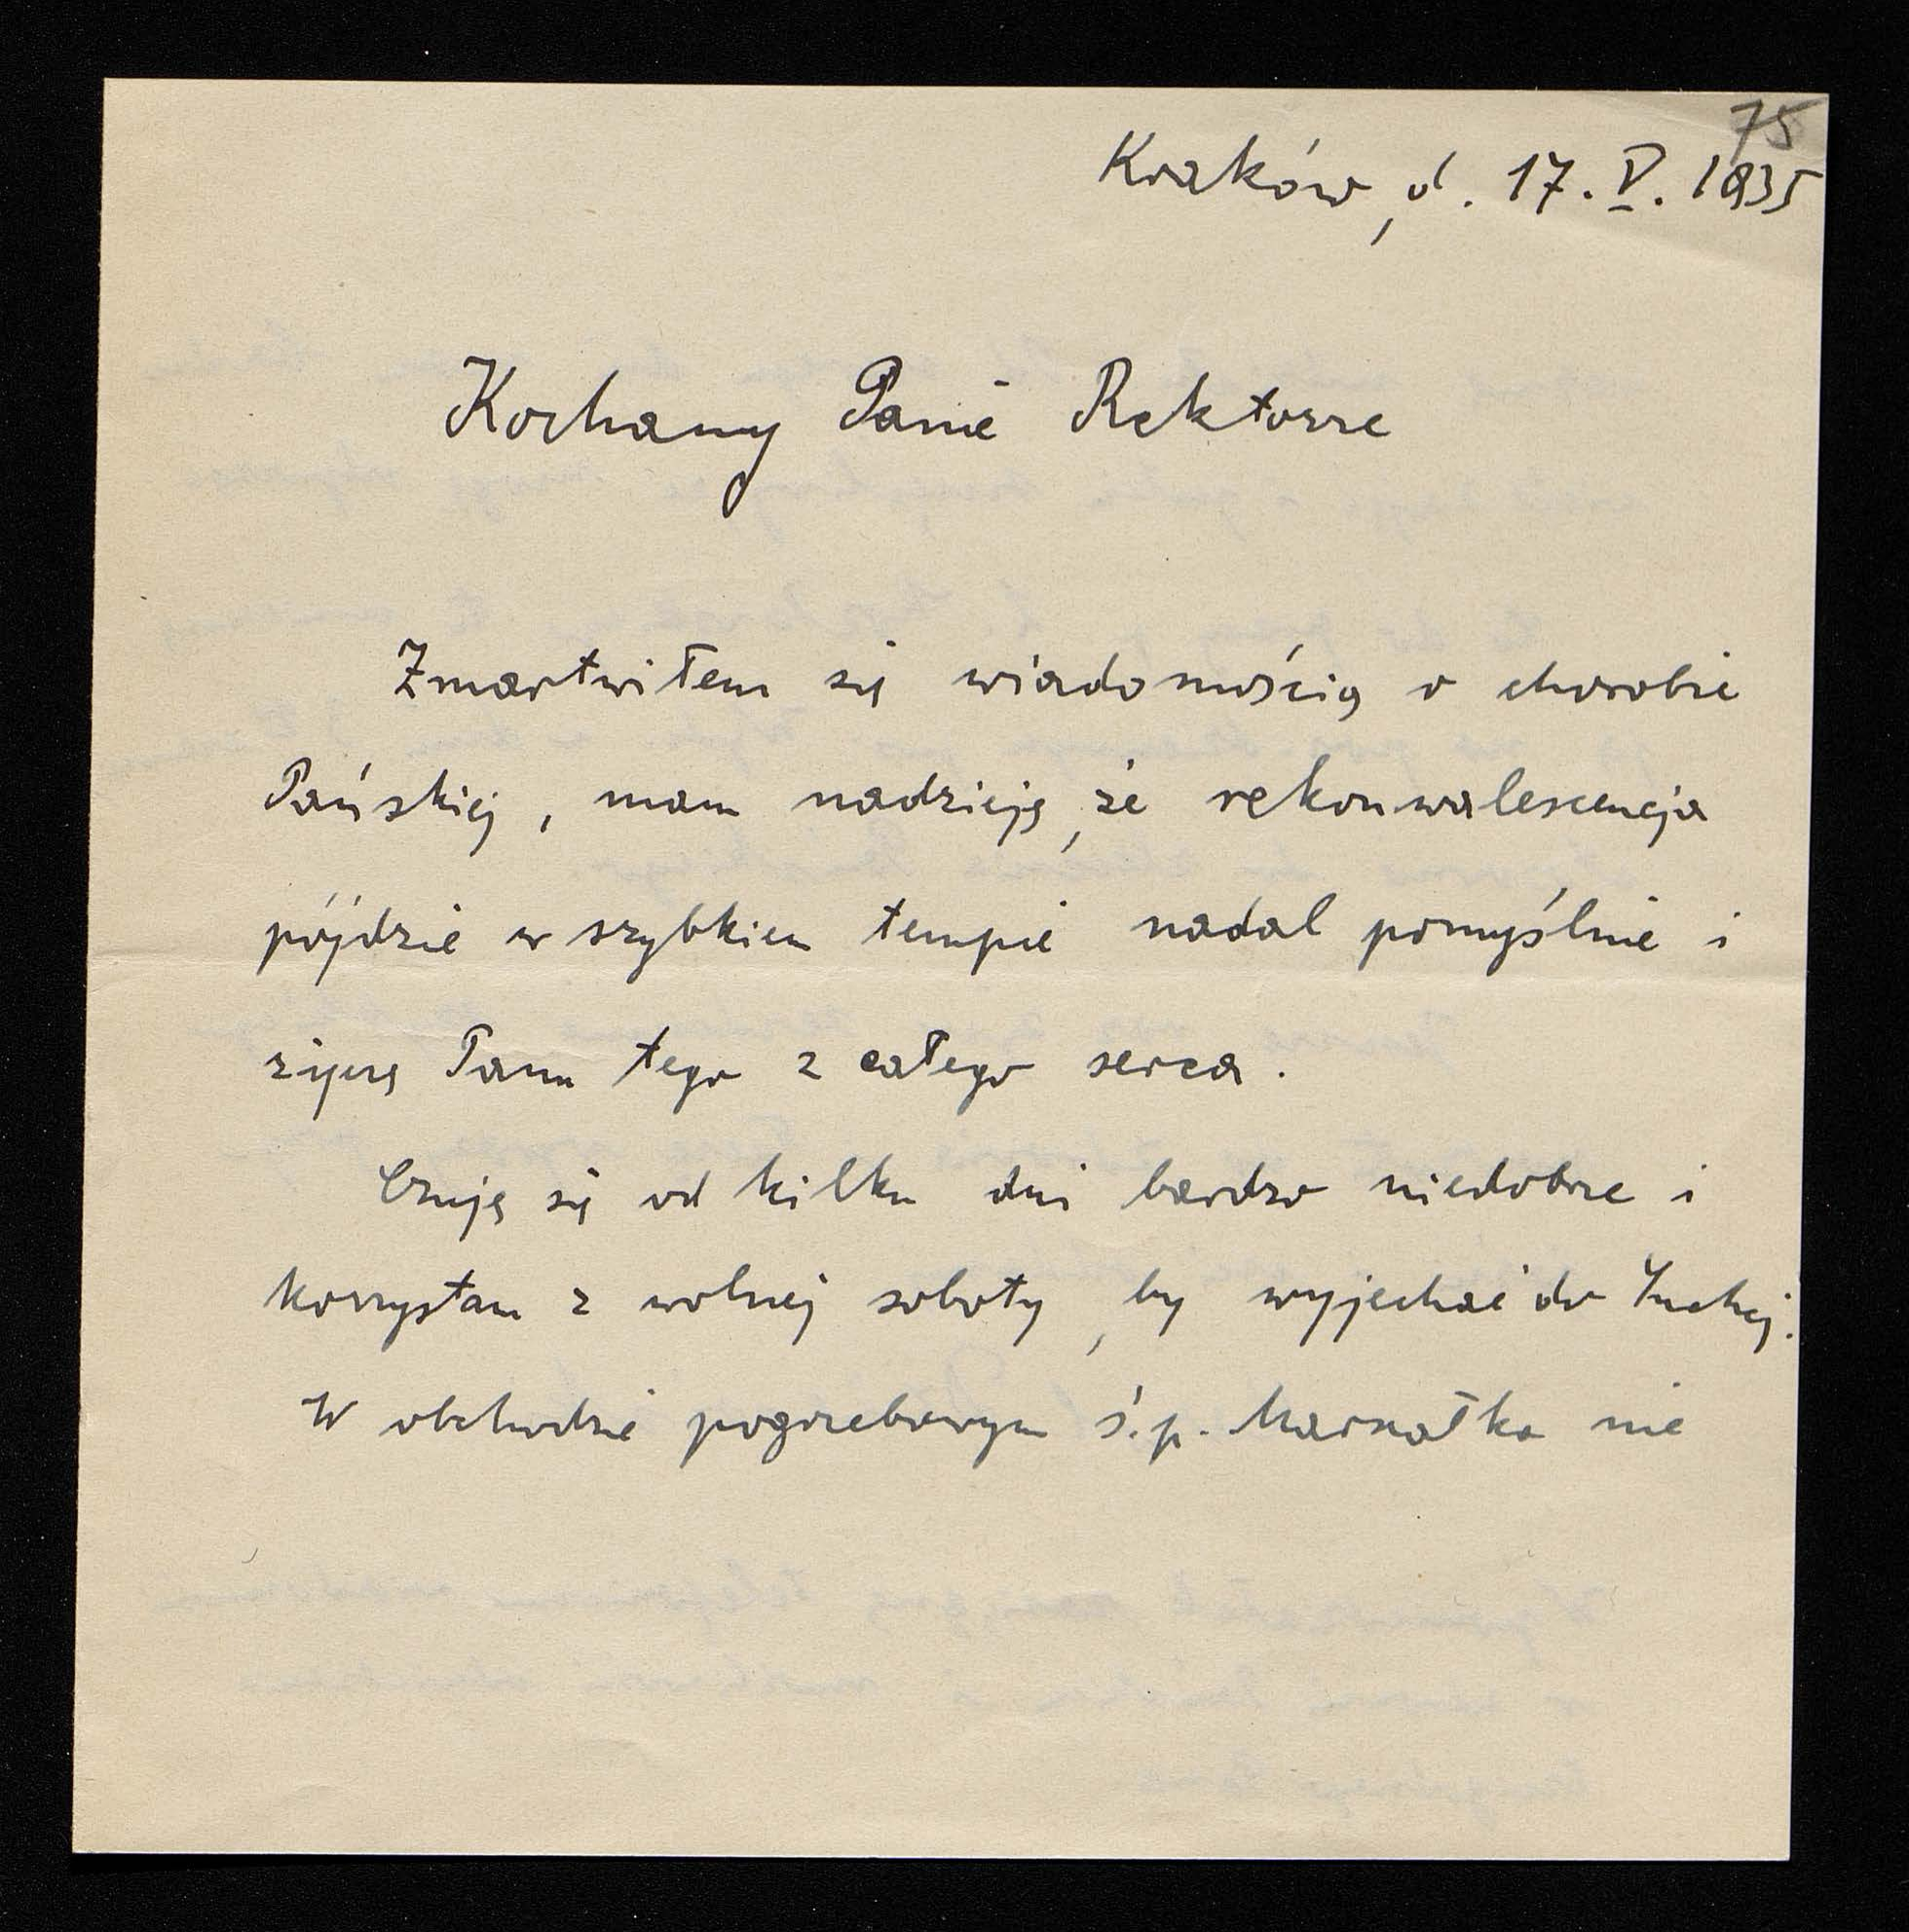 75
Kraków, d. 17. V. 1935
Kochany Panie Rektorze
Zmartwiłem się wiadomością o chorobie
Pańskiej, mam nadzieję, że rekonwalescencja
pójdzie w szybkiem tempie nadal pomyślnie i
życzę Panu tego z całego serca.
Czuję się od kilku dni bardzo niedobrze i
korzystam z wolnej soboty, by wyjechać do Suchej.
W obchodzie pogrzebowym ś.p. Marszałka nie